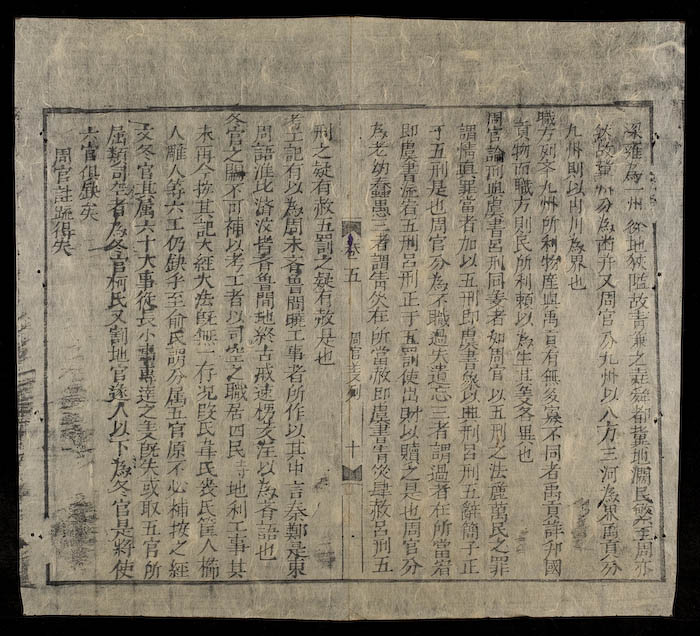 梁雍為一州徐地狹隘故青兼之堯舜都冀地濶民繁至周亦
然故冀州分為幽并又周官分九州以八方三河為界禹貢分
九州則以山川為界也
職方列子九州所利物產與禹貢有無多寡不同者禹貢詳邦國
貢物而職方則民所利賴以為生其義各異也
周官論刑與虞書呂刑同義者如周官以五刑之法麗萬民之罪
謂情與罪當者加以五刑即虞書象以典刑呂刑五辭簡孚正
于五刑是也周官分為不職過失遺忘三者謂過者在所當宥
即虞書流宥五刑呂刑正于五罰使出財以贖之是也周官分
為老幼蠢愚三者謂眚災在所當赦即虞書眚災肆赦呂刑五
卷五 周官 十
刑之疑有赦五罰之疑有赦是也
考工記有以為周末齊魯間曉工事者所作以其中言秦鄭是東
周語淮比濟汶皆齊魯間地終古戚速椑茭注以為齊語也
冬官之闕不可補以考工者以司空之職居四民時地利工事其
末再今按其記大經大法既無一存況段氏韋氏裘氏筐人櫛
人雕人等六工仍缺乎至俞氏謂分属五官原不必補按之經
文冬官其属六十大事從長小事專達之義既失或取五官所
屬類司空者為冬官柯氏又割地官遂人以下為冬官是將使
六官俱缺矣
周官註疏得失